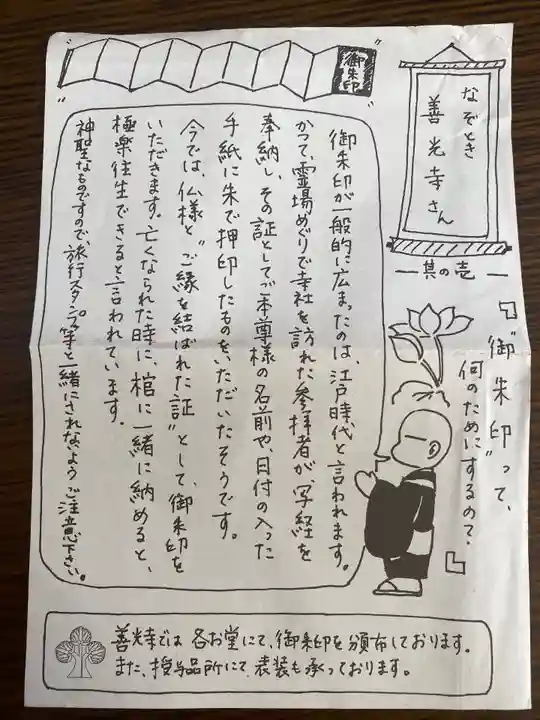 なぞとき
善光寺さん
其の壱
『御朱印って、
何のためにするの？』
御朱印
御朱印が一般的に広まったのは、江戸時代と言われます。
かつて、霊場めぐりで寺社を訪れた参拝者が、写経を
奉納し、その証としてご本尊様の名前や、日付の入った
手紙に朱で押印したものをいただいたそうです。
今では、仏様と"ご縁を結ばれた証"として、御朱印を
いただきます。亡くなられた時に、棺に一緒に納めると、
極楽往生できると言われています。
神聖なものですので、旅行スタンプ等と一緒にされないようご注意下さい。
善光寺では各お堂にて、御朱印を頒布しております。
また、授与品所にて、表装も承っております。